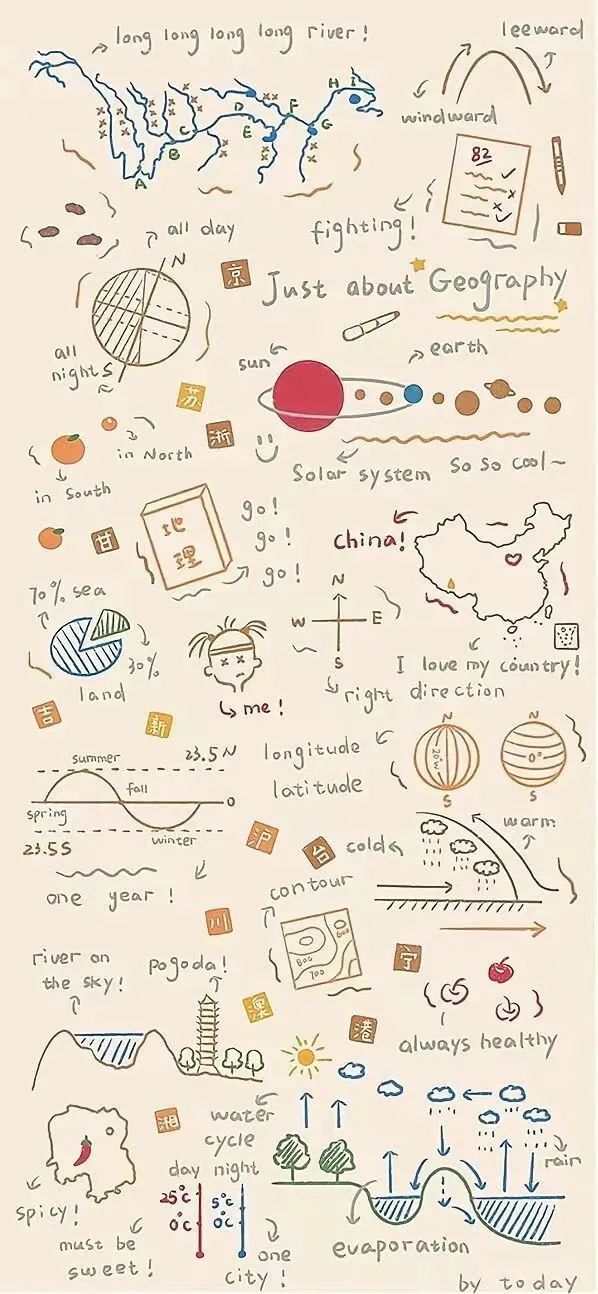 long long long long river!
leeward
windward
H I
D F
C E G
B
A
82
all day
fighting!
N
京
Just about Geography
all
night S
earth
sun
苏
浙
in North
Solar system so so cool~
in South
地
理
go!
go!
go!
甘
China!
70% sea
N
W E
S
30%
land
I love my country!
me!
right direction
吉
新
N N
longitude
20W 0°
latitude
S S
summer
23.5N
fall
0
spring
winter
23.5S
沪
台
cold
warm
one year!
contour
川
600
800
700
宁
river on
the sky!
pogoda!
澳
港
always healthy
湘
water
cycle
rain
day night
25°C 5°C
0°C 0°C
spicy!
must be
sweet!
one
city!
evaporation
by today